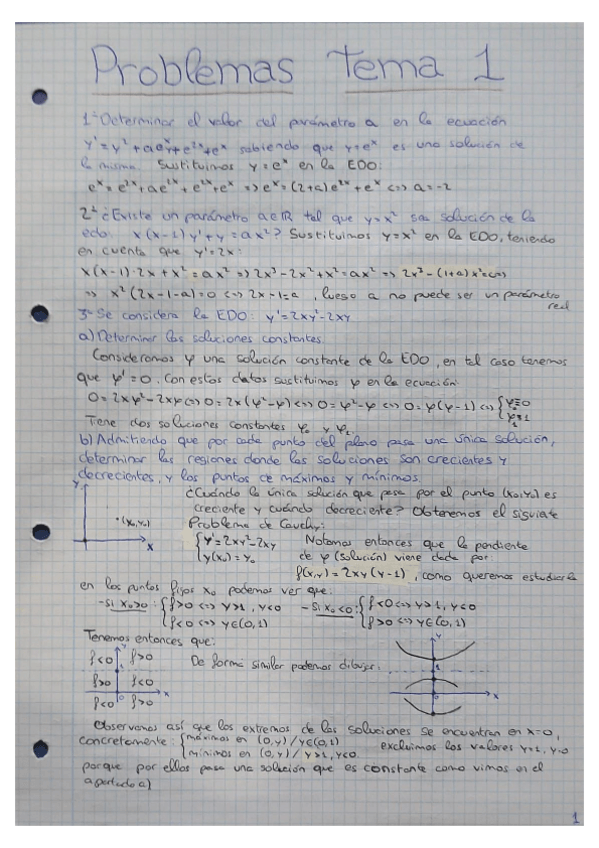 Problemas Tema 1
1º Determinar el valor del parámetro a en la ecuación
y' = y² + aeˣy + e²ˣ + eˣ sabiendo que y=eˣ es una solución de
la misma. Sustituimos y = eˣ en la EDO:
eˣ = e²ˣ + ae²ˣ + e²ˣ + eˣ => eˣ = (2+a)e²ˣ + eˣ <=> a = -2
2º ¿Existe un parámetro a∈ℝ tal que y=x² sea solución de la
edo: x(x-1)y' + y = ax²? Sustituimos y=x² en la EDO, teniendo
en cuenta que y'=2x:
x(x-1)·2x + x² = ax² => 2x³ - 2x² + x² = ax² => 2x³ - (1+a)x² = 0 <=>
=> x²(2x-1-a)=0 <=> 2x-1=a, luego a no puede ser un parámetro
real
3º Se considera la EDO: y' = 2xy² - 2xy
a) Determinar las soluciones constantes.
Consideramos φ una solución constante de la EDO, en tal caso tenemos
que φ' = 0. Con estos datos sustituimos φ en la ecuación:
0 = 2xφ² - 2xφ <=> 0 = 2x(φ²-φ) <=> 0 = φ²-φ <=> 0 = φ(φ-1) <=> { φ₀≡0
φ₁≡1
Tiene dos soluciones constantes φ₀ y φ₁.
b) Admitiendo que por cada punto del plano pasa una única solución,
determinar las regiones donde las soluciones son crecientes y
decrecientes, y los puntos de máximos y mínimos.
y
¿Cuándo la única solución que pasa por el punto (x₀,y₀) es
creciente y cuándo decreciente? Obtenemos el siguiente
•(x₀,y₀) Problema de Cauchy:
{ y' = 2xy² - 2xy Notamos entonces que la pendiente
x { y(x₀) = y₀ de φ (solución) viene dada por
f(x,y) = 2xy(y-1), como queremos estudiarla
en los puntos fijos x₀ podemos ver que:
- Si x₀>0: { f>0 <=> y>1, y<0 - Si x₀<0: { f<0 <=> y>1, y<0
f<0 <=> y∈(0,1) f>0 <=> y∈(0,1)
Tenemos entonces que:
y
f<0 f>0 De forma similar podemos dibujar:
1
f>0 f<0 x
0
f<0 f>0
y
1
x
Observamos así que los extremos de las soluciones se encuentran en x=0,
concretamente: { máximos en (0,y) / y∈(0,1)
mínimos en (0,y) / y>1, y<0 excluimos los valores y=1, y=0
porque por ellos pasa una solución que es constante como vimos en el
apartado a)
1